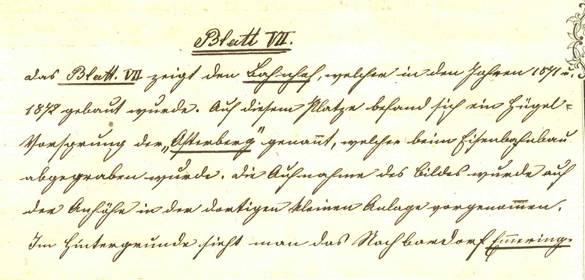 Blatt VII.
Das Blatt. VII zeigt den Bahnhof, welcher in den Jahren 1871 u.
1872 gebaut wurde. Auf diesem Platze befand sich ein Hügel-
Vorsprung der „Asterberg" genannt, welcher beim Eisenbahnbau
abgegraben wurde. Die Aufnahme des Bildes wurde auf
der Anhöhe in der dortigen kleinen Anlage vorgenommen.
Im Hintergrunde sieht man das Nachbardorf Emmering.